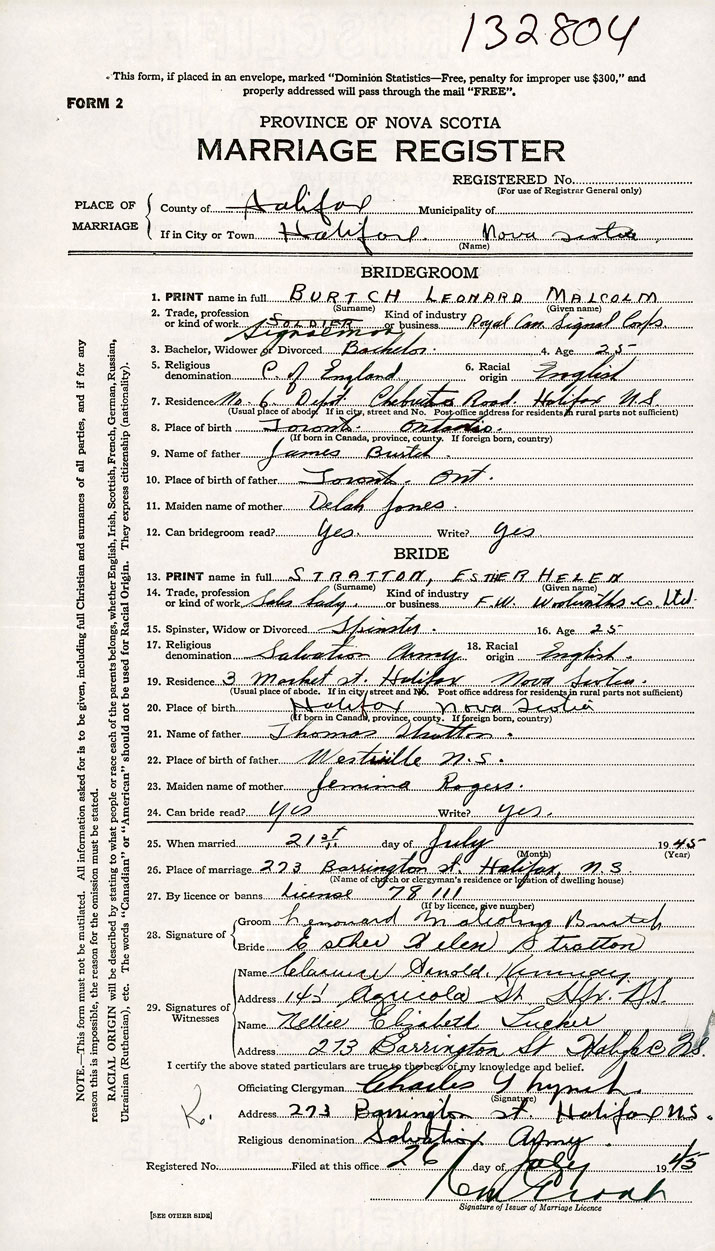 132804
This form, if placed in an envelope, marked "Dominion Statistics—Free, penalty for improper use $300," and
properly addressed will pass through the mail "FREE".
FORM 2
PROVINCE OF NOVA SCOTIA
MARRIAGE REGISTER
REGISTERED No.
(For use of Registrar General only)
PLACE OF MARRIAGE
County of Halifax Municipality of
If in City or Town Halifax. Nova Scotia
(Name)
BRIDEGROOM
1. PRINT name in full BURTCH LEONARD MALCOLM
(Surname) (Given name)
2. Trade, profession or kind of work SOLDIER Signalman Kind of industry or business Royal Can. Signal Corps.
3. Bachelor, Widower or Divorced Bachelor. 4. Age 25
5. Religious denomination C. of England 6. Racial origin English
7. Residence No. 6. Depot Chebucto Road. Halifax N.S.
(Usual place of abode. If in city, street and No. Post office address for residents in rural parts not sufficient)
8. Place of birth Toronto. Ontario.
(If born in Canada, province, county. If foreign born, country)
9. Name of father James Burtch.
10. Place of birth of father Toronto. Ont.
11. Maiden name of mother Delah Jones.
12. Can bridegroom read? Yes. Write? Yes.
BRIDE
13. PRINT name in full STRATTON, ESTHER HELEN
(Surname) (Given name)
14. Trade, profession or kind of work Sales Lady. Kind of industry or business F.W. Woolworths Co. Ltd.
15. Spinster, Widow or Divorced Spinster. 16. Age 25
17. Religious denomination Salvation Army 18. Racial origin English.
19. Residence 3 Market st. Halifax Nova Scotia.
(Usual place of abode. If in city, street and No. Post office address for residents in rural parts not sufficient)
20. Place of birth Halifax Nova Scotia
(If born in Canada, province, county. If foreign born, country)
21. Name of father Thomas Stratton.
22. Place of birth of father Westville N.S.
23. Maiden name of mother Jemima Rogers.
24. Can bride read? Yes Write? Yes.
25. When married 21st day of July 1945
(Month) (Year)
26. Place of marriage 273 Barrington st. Halifax, N.S.
(Name of church or clergyman's residence or location of dwelling house)
27. By licence or banns license 78111
(If by licence, give number)
28. Signature of
Groom Lenonard Malcolm Burtch
Bride Esther Helen Stratton
29. Signatures of Witnesses
Name Clarence Arnold
Address 145 Agricola St Hfx. N.S.
Name Nellie Elizabeth Tucker
Address 273 Barrington St Halifax N.S.
I certify the above stated particulars are true to the best of my knowledge and belief.
Officiating Clergyman Charles Lynch.
(Signature)
K.
Address 273 Barrington st. Halifax N.S.
Religious denomination Salvation Army.
Registered No. Filed at this office 26 day of July 1945
Signature of Issuer of Marriage Licence
[SEE OTHER SIDE]
NOTE.—This form must not be mutilated. All information asked for is to be given, including full Christian and surnames of all parties, and if for any
reason this is impossible, the reason for the omission must be stated.
RACIAL ORIGIN will be described by stating to what people or race each of the parents belongs, whether English, Irish, Scottish, French, German, Russian,
Ukrainian (Ruthenian), etc. The words "Canadian" or "American" should not be used for Racial Origin. They express citizenship (nationality).